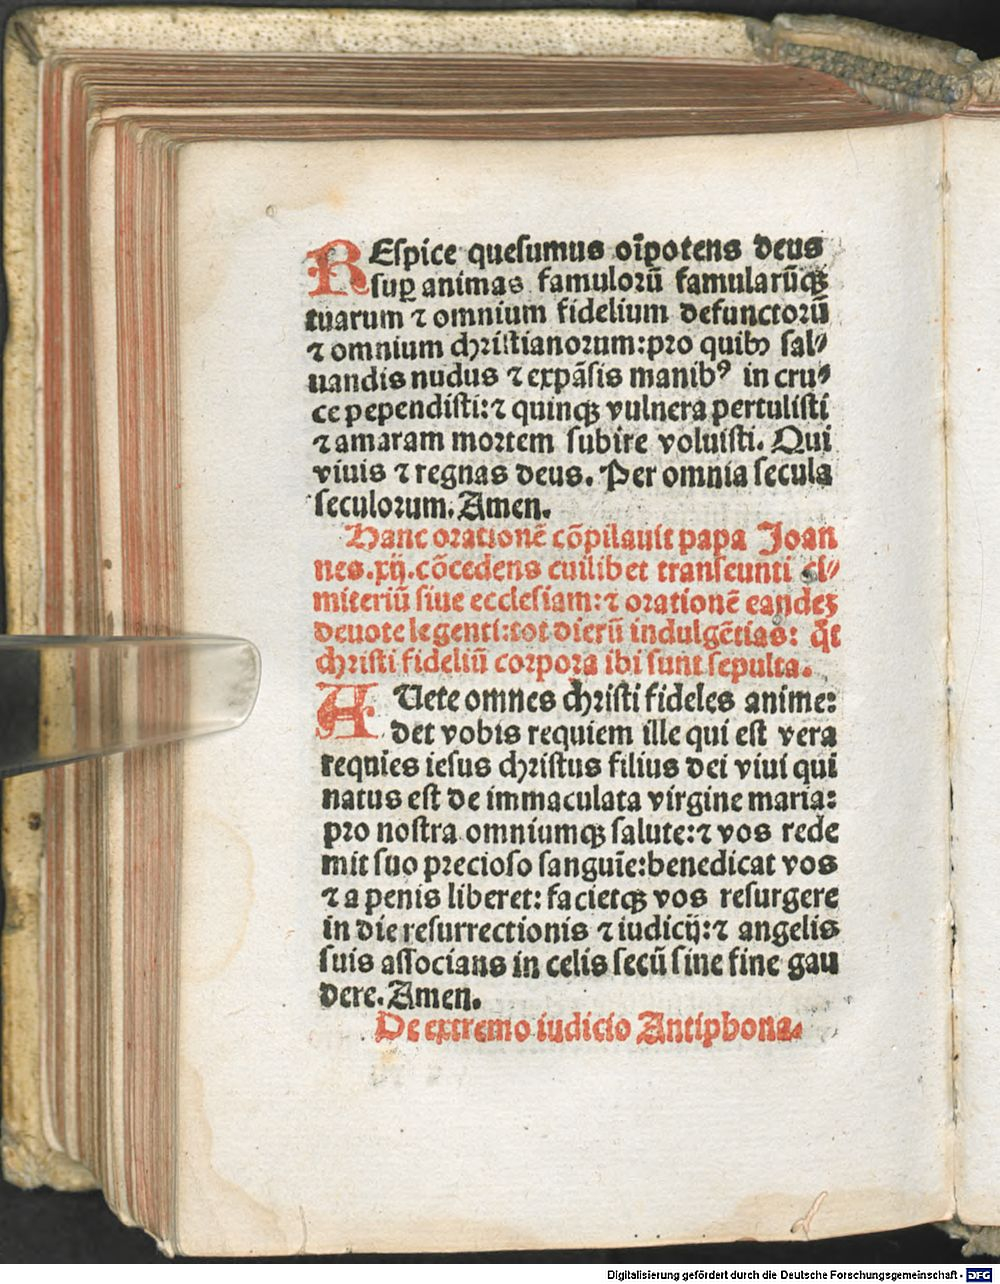 REſpice queſumus oīpotens deus
ſuꝑ animas famuloꝛū famularūqꝫ
tuarum ⁊ omnium fidelium defunctoꝛū
⁊ omnium chꝛiſtianoꝛum: pꝛo quibꝫ ſal⸗
uandis nudus ⁊ expāſis manibꝰ in cru⸗
ce pependiſti: ⁊ quinqꝫ vulnera pertuliſti
⁊ amaram moꝛtem ſubire voluiſti. Qui
viuis ⁊ regnas deus. Per omnia ſecula
ſeculoꝛum. Amen.
Hanc oꝛationē cōpilauit papa Joan
nes.xij.cōcedens cuilibet tranſeunti ci⸗
miteriū ſiue eccleſiam: ⁊ oꝛationē eandeꝫ
deuote legenti: tot dierū indulgētias: q̄t
chꝛiſti fideliū coꝛpoꝛa ibi ſunt ſepulta.
AUete omnes chꝛiſti fideles anime:
det vobis requiem ille qui eſt vera
requies ieſus chꝛiſtus filius dei viui qui
natus eſt de immaculata virgine maria:
pꝛo noſtra omniumqꝫ ſalute: ⁊ vos rede
mit ſuo pꝛecioſo ſanguīe: benedicat vos
⁊ a penis liberet: facietqꝫ vos reſurgere
in die reſurrectionis ⁊ iudicij: ⁊ angelis
ſuis aſſocians in celis ſecū ſine fine gau
dere. Amen.
De extremo iudicio Antiphona.
Digitalisierung gefördert durch die Deutsche Forschungsgemeinschaft - DFG